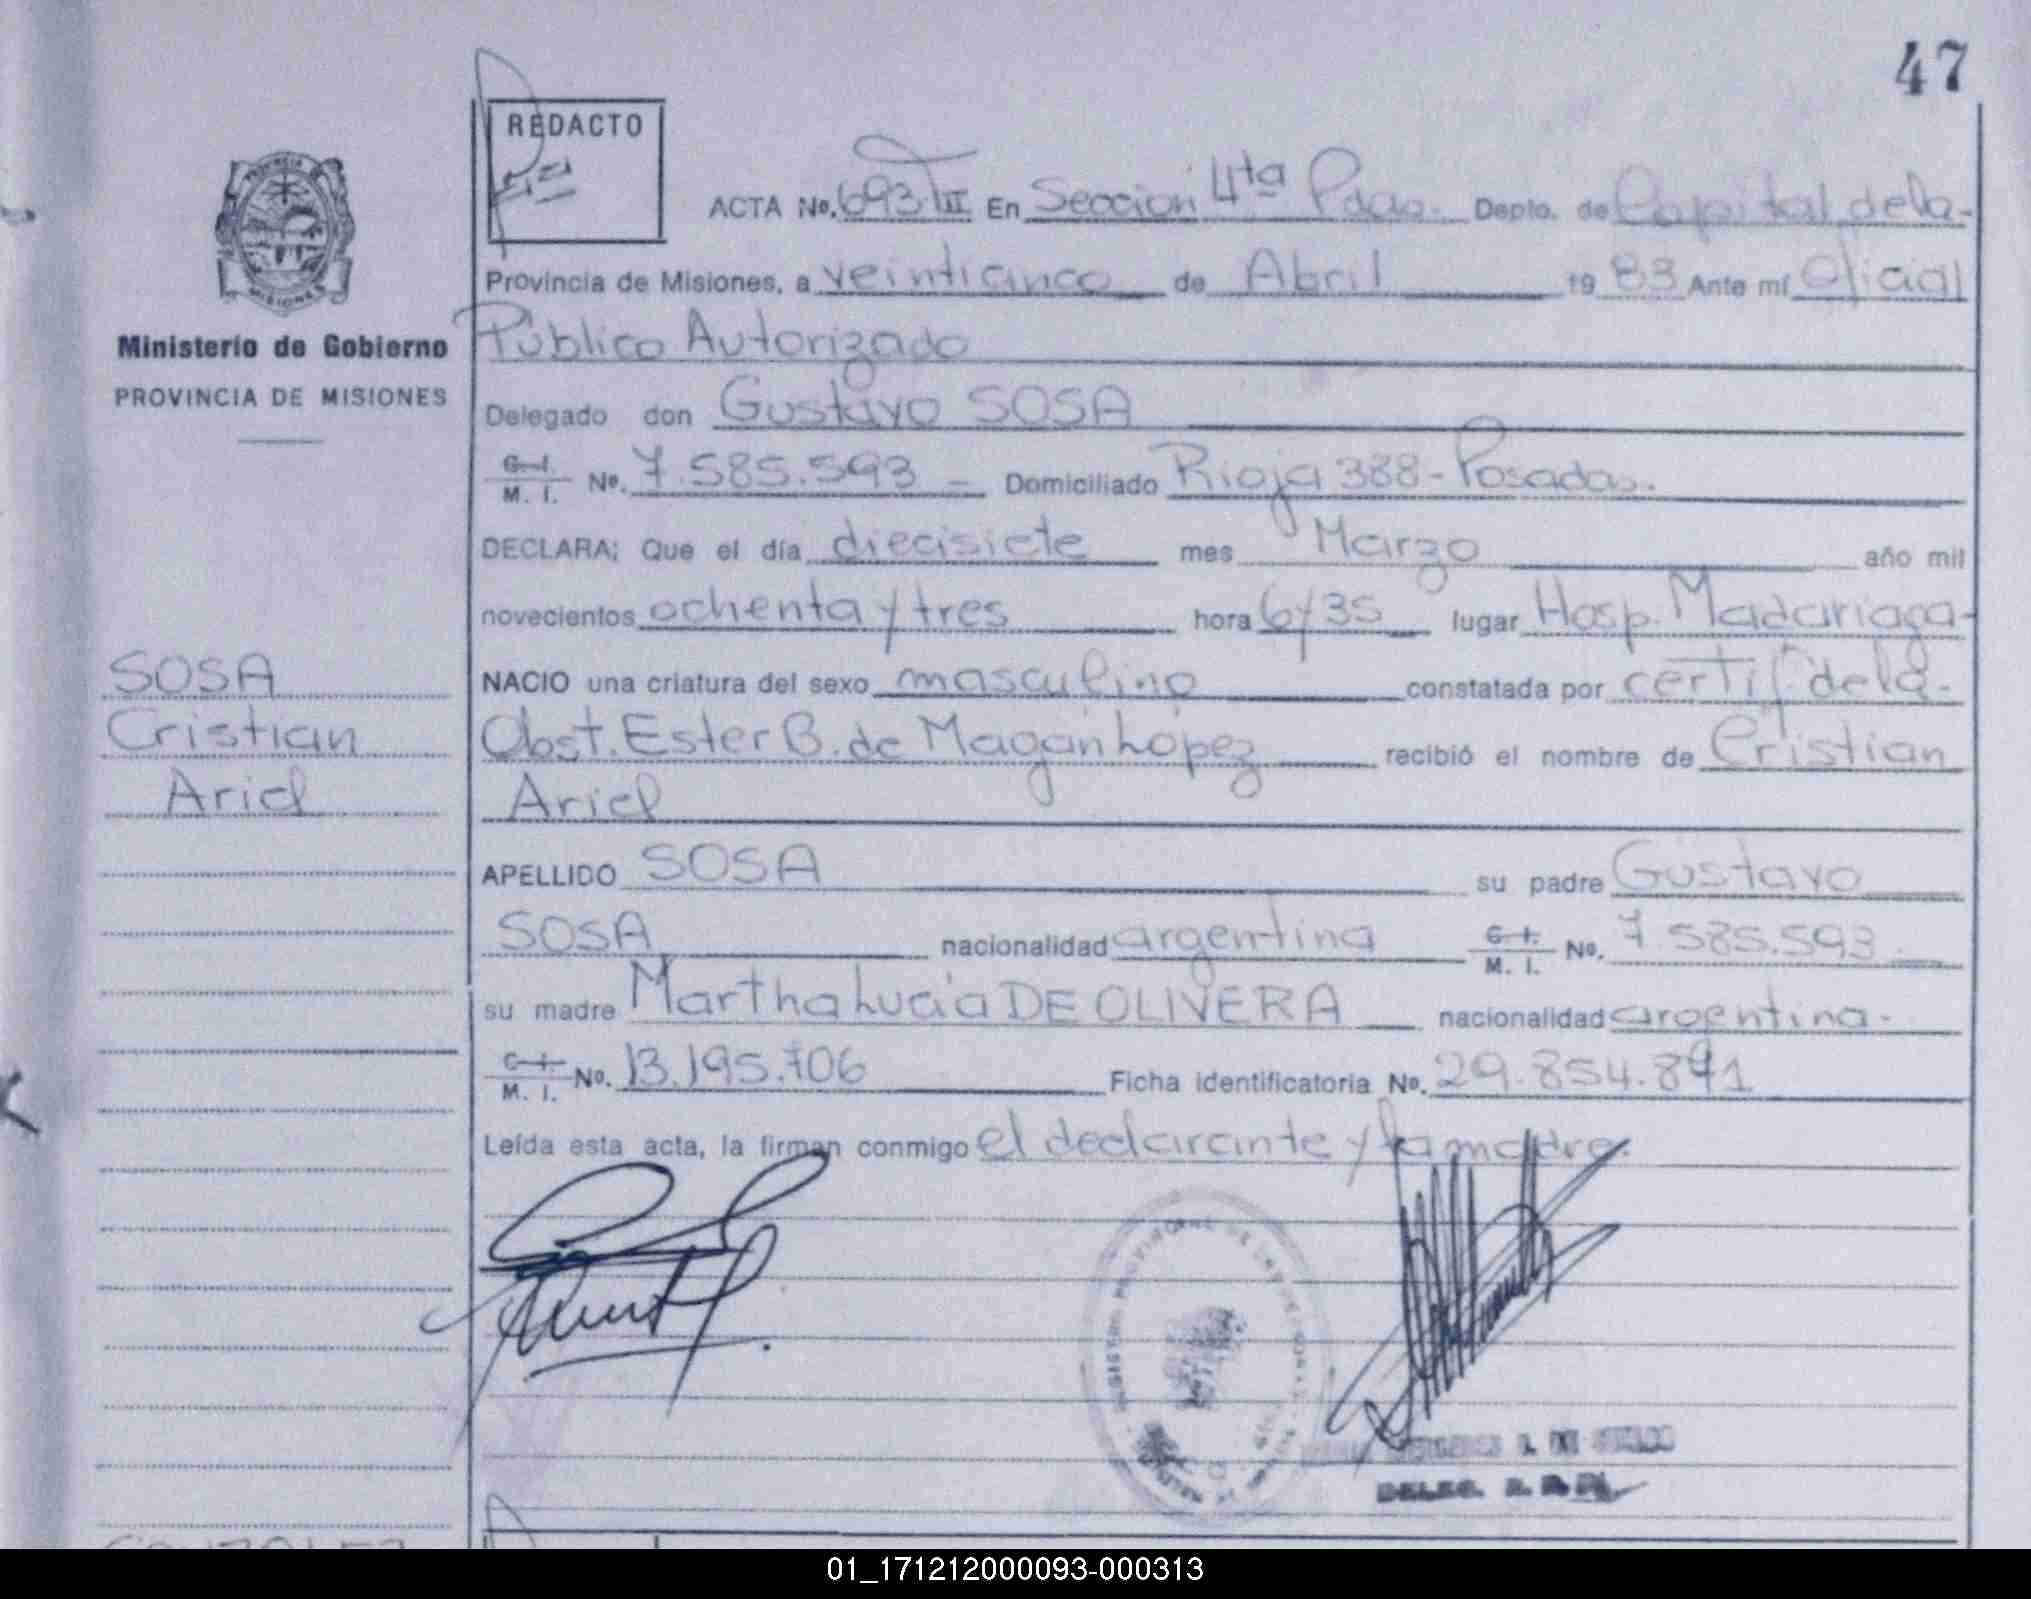 47
REDACTO
ACTA No. 693.TII En Sección 4ta Pdas. Depto. de Capital de la-
Provincia de Misiones, a veinticinco de Abril 1983 Ante mí Oficial
Ministerio de Gobierno
Público Autorizado
PROVINCIA DE MISIONES
Delegado don Gustavo SOSA
C. I. M. I. No. 7.585.593 - Domiciliado Rioja 388 - Posadas.
DECLARA; Que el día diecisiete mes Marzo año mil
novecientos ochenta y tres hora 6y35 lugar Hosp. Madariaga-
SOSA
NACIO una criatura del sexo masculino constatada por certif. de la-
Cristian
Obst. Ester B. de Magan López recibió el nombre de Cristian
Ariel
Ariel
APELLIDO SOSA su padre Gustavo
SOSA nacionalidad argentina C. I. M. I. No. 7 585.593
su madre Martha Lucia DE OLIVERA nacionalidad argentina.
C. I. M. I. No. 13.195.706 Ficha identificatoria No. 29.854.891
Leída esta acta, la firman conmigo el declarante y la madre.
DELEG.
01_171212000093-000313